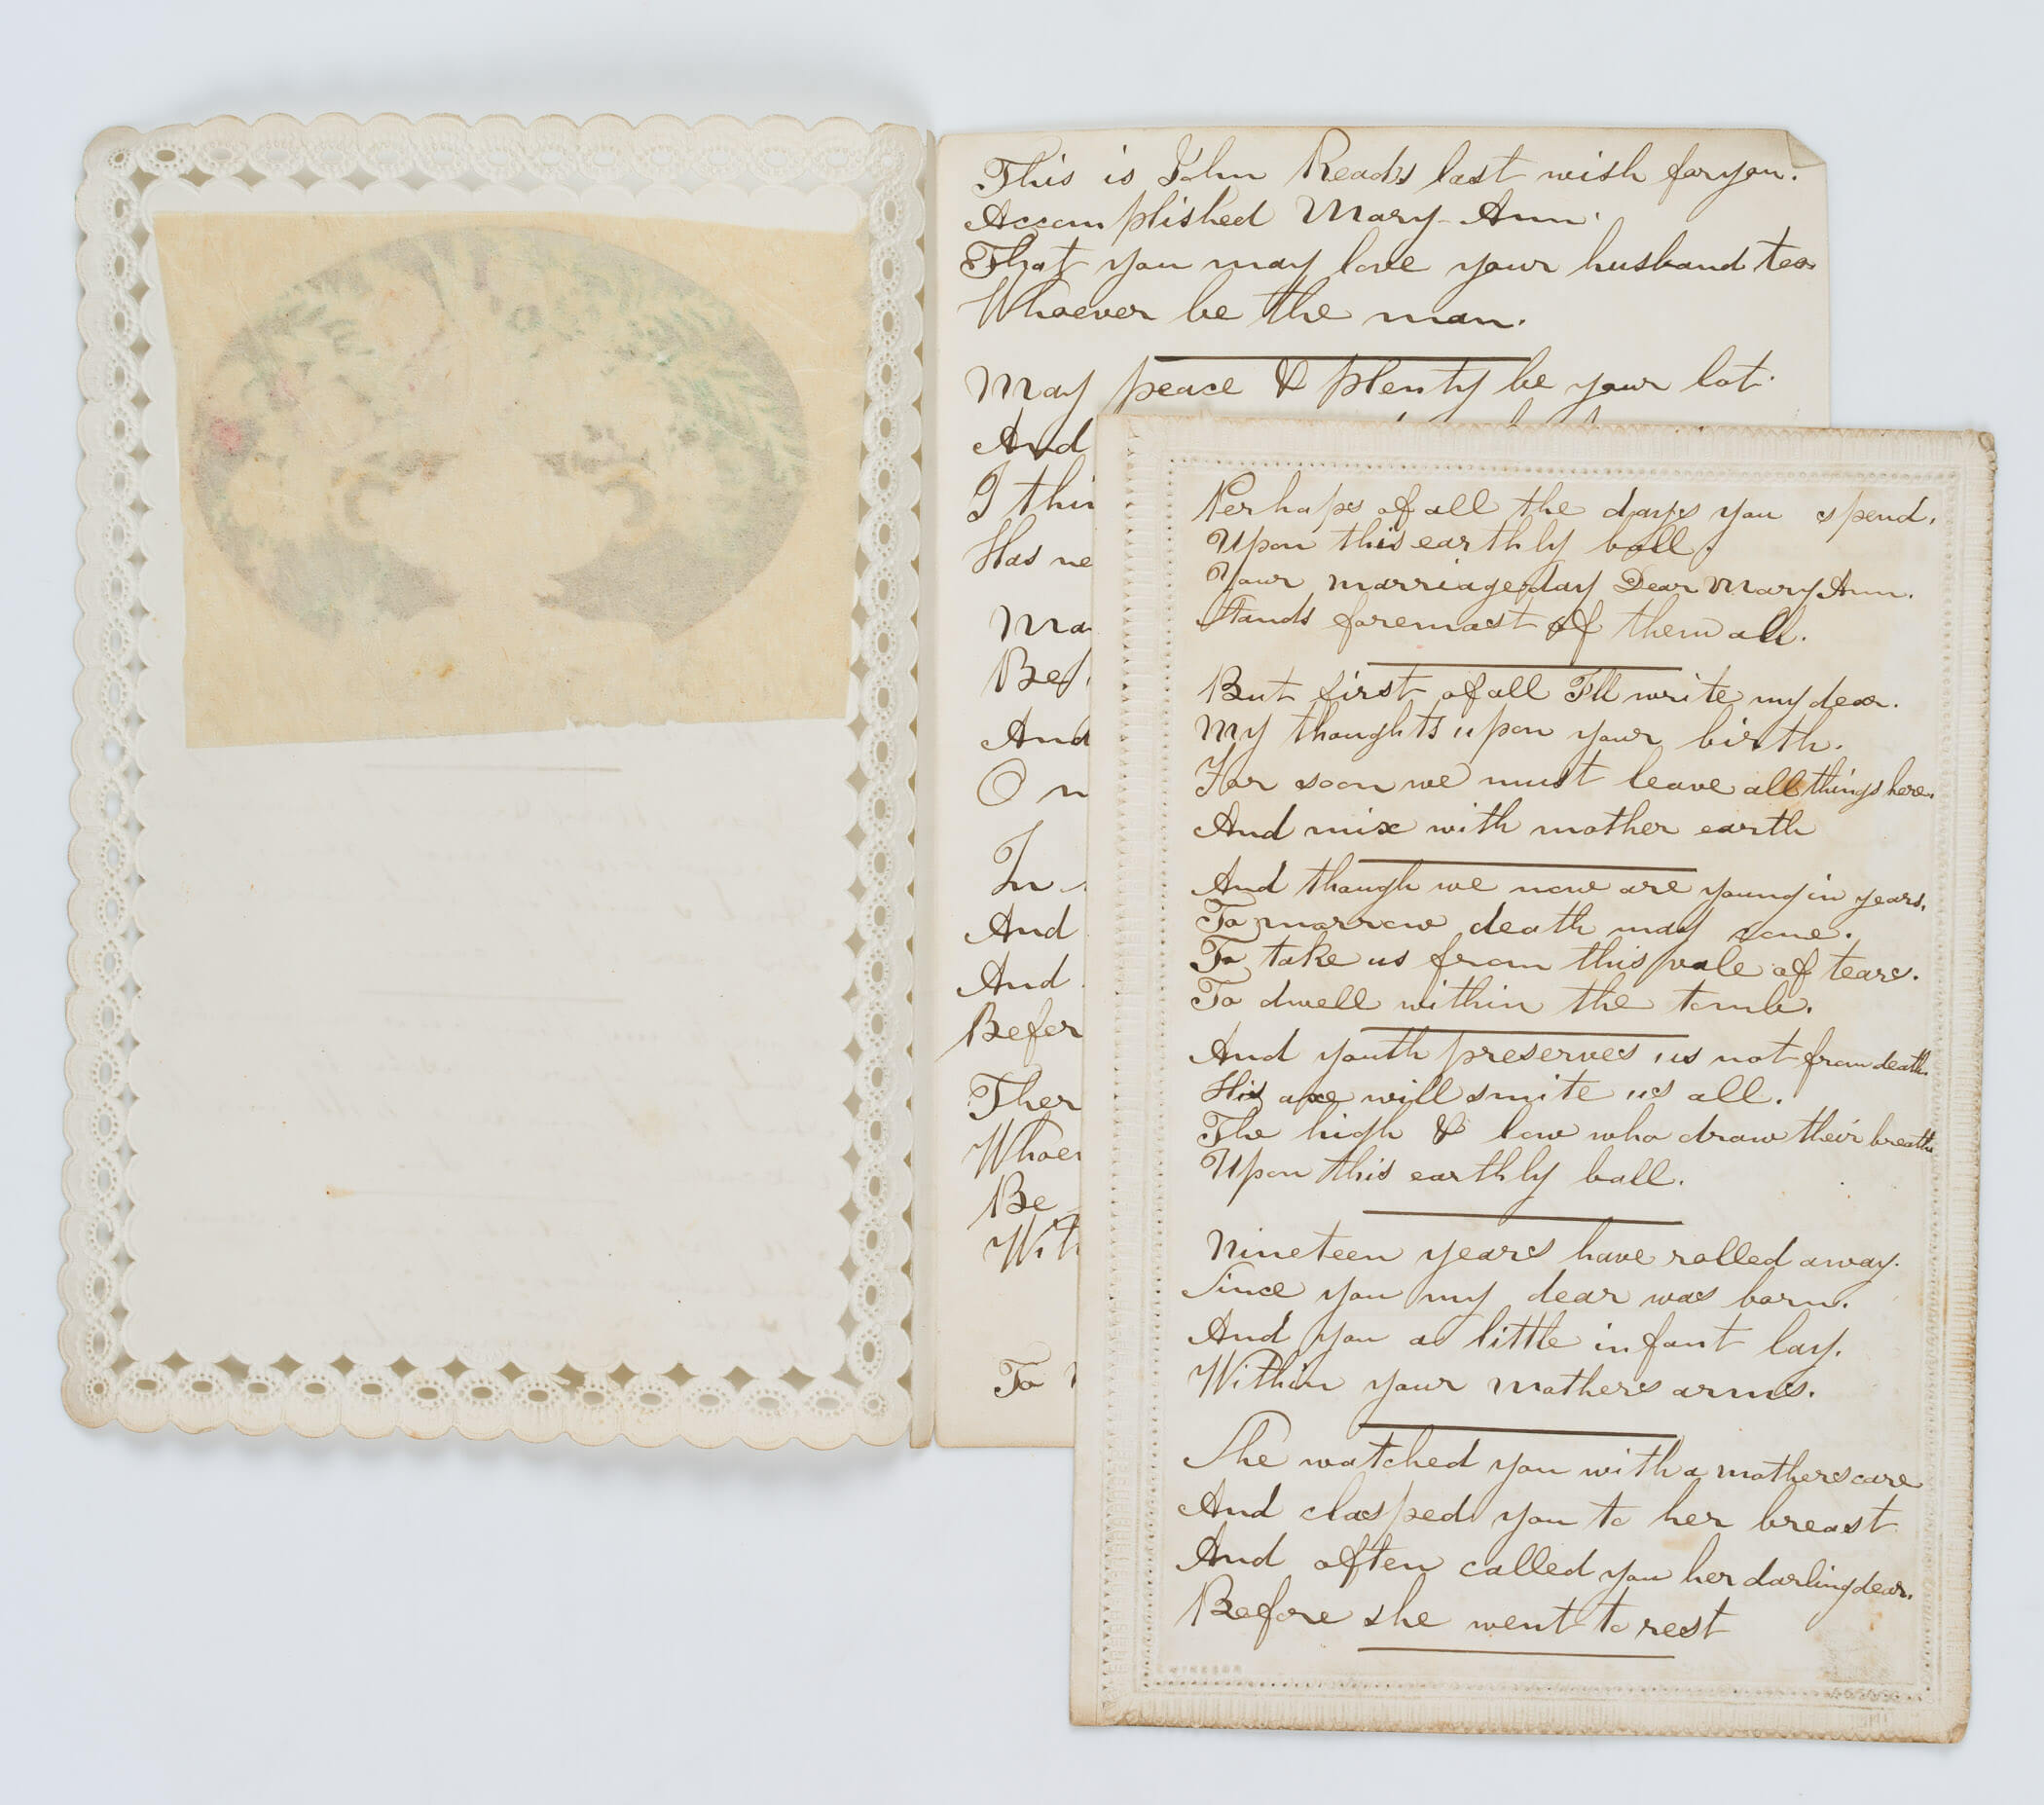 This is John Reads last wish for you.
Accomplished Mary-Ann.
That you may love your husband too
Whoever be the man.
May peace & plenty be your lot.
And
I thin
Has ne
Ma
Bef
And
O
In
And
And
Befor
Ther
Whoev
Be
With
To
Perhaps of all the days you spend,
Upon this earthly ball.
Your marriage day Dear Mary Ann.
Stands foremost of them all.
But first of all I'll write my dear.
My thoughts upon your birth.
For soon we must leave all things here.
And mix with mother earth
And though we now are young in years.
To morrow death may come.
To take us from this vale of tears.
To dwell within the tomb.
And youth preserves us not from death.
His axe will smite us all.
The high & low who draw their breath
Upon this earthly ball.
Nineteen years have rolled away.
Since you my dear was born.
And you a little infant lay.
Within your mothers arms.
She watched you with a mothers care
And clasped you to her breast
And often called you her darling dear.
Before she went to rest
WINDSOR